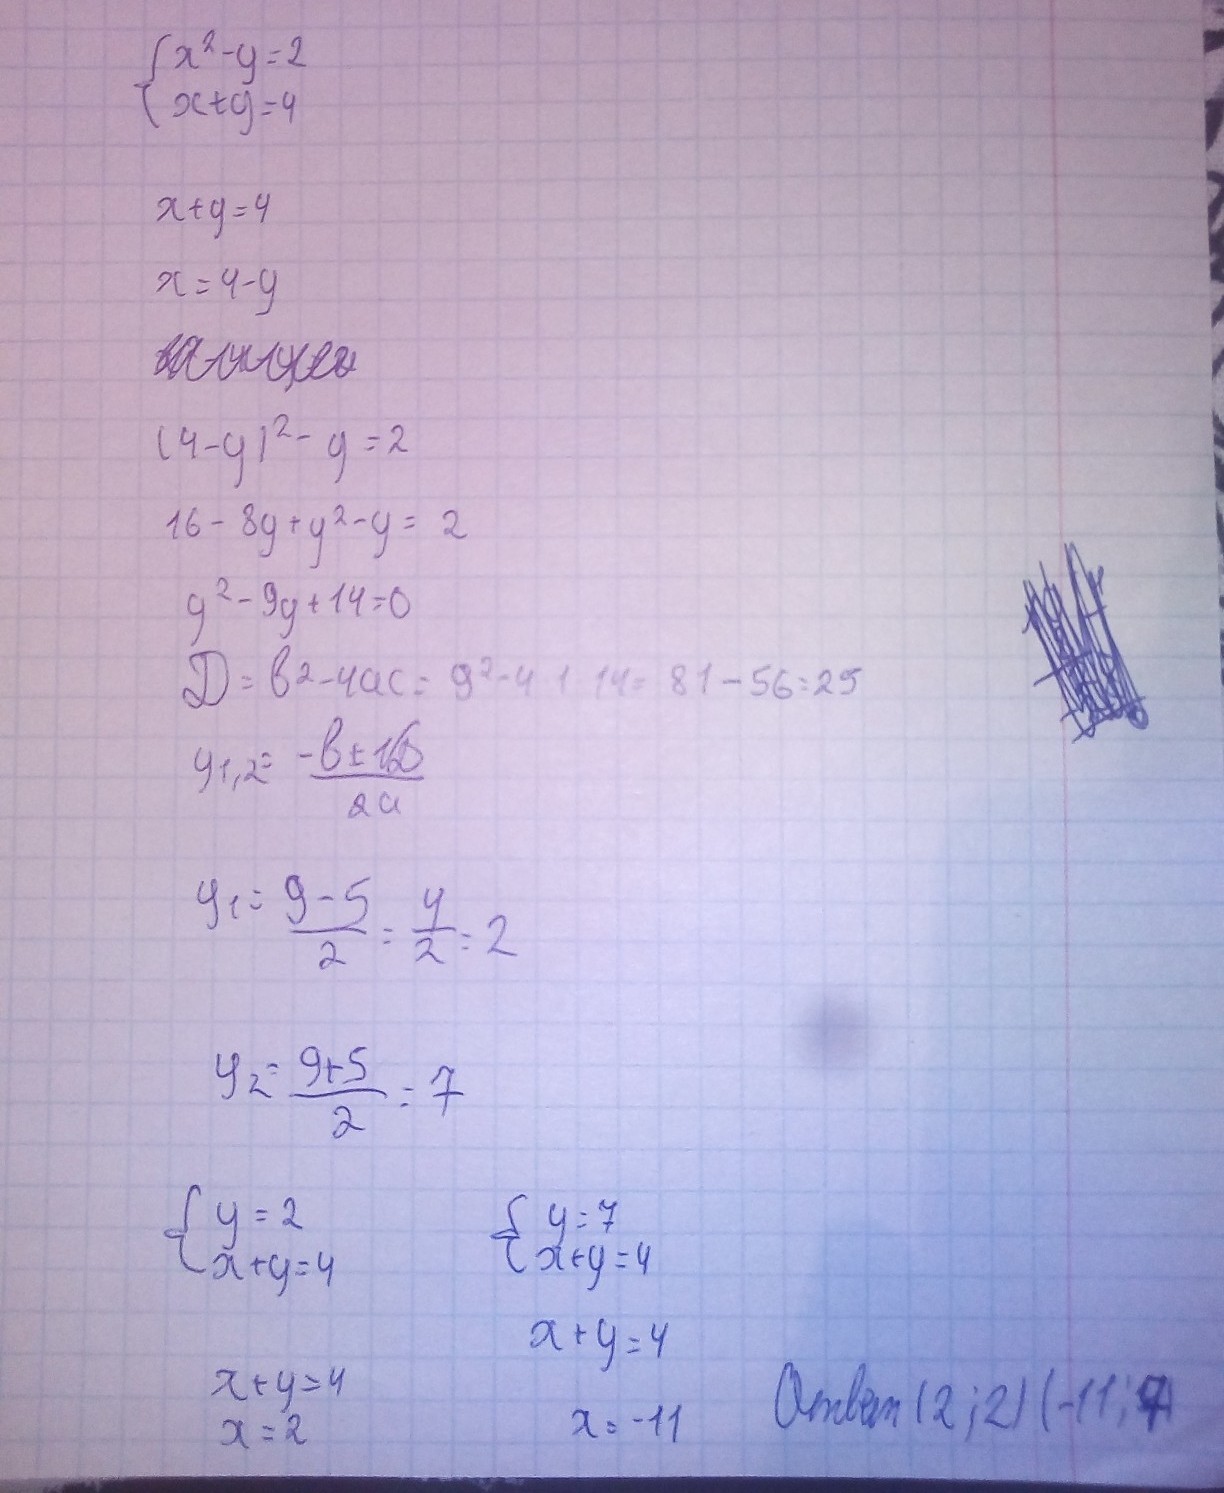 {x²-y=2
{x+y=4
x+y=4
x=4-y
(4-y)²-y=2
16-8y+y²-y=2
y²-9y+14=0
D=b2-4ac=9²-4·1·14=81-56=25
y1,2=(-b±√D)/2a
y1=(9-5)/2=4/2=2
y2=(9+5)/2=7
{y=2 {y=7
{x+y=4 {x+y=4
x+y=4
x+y=4
x=2 x=-11
Ответ (2;2) (-11;7)